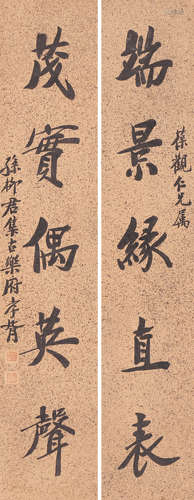 端景緣直表
葆觀仁兄屬
茂實偶英聲
孫柳君集古樂府孝胥